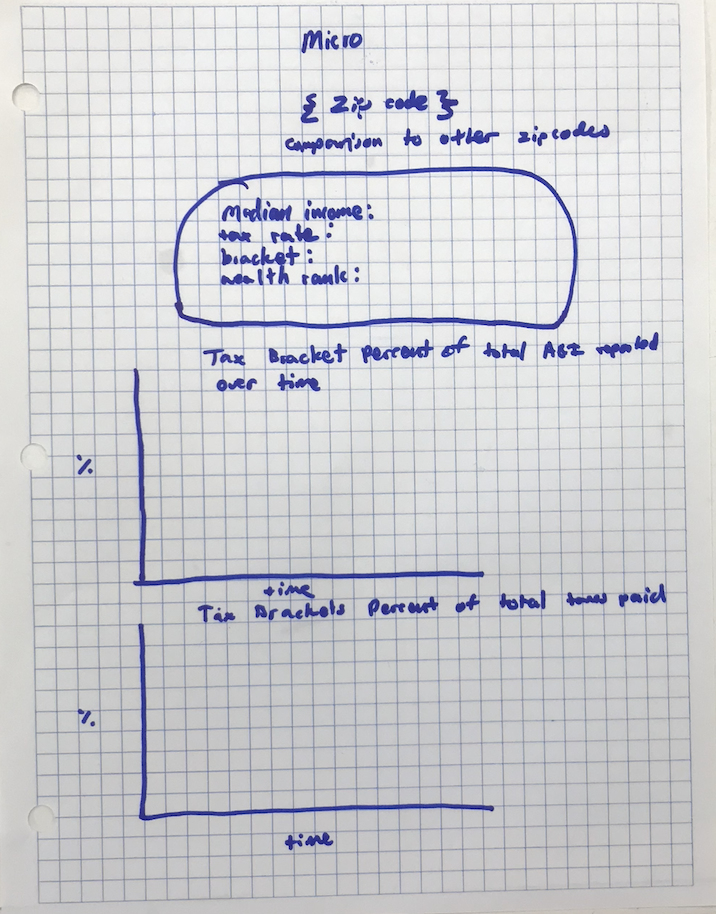 Micro
{ Zip code }
comparison to other zipcodes
Median income:
tax rate:
bracket:
wealth rank:
Tax Bracket percent of total AGI reported
over time
%
time
Tax Brackets Percent of total taxes paid
%
time